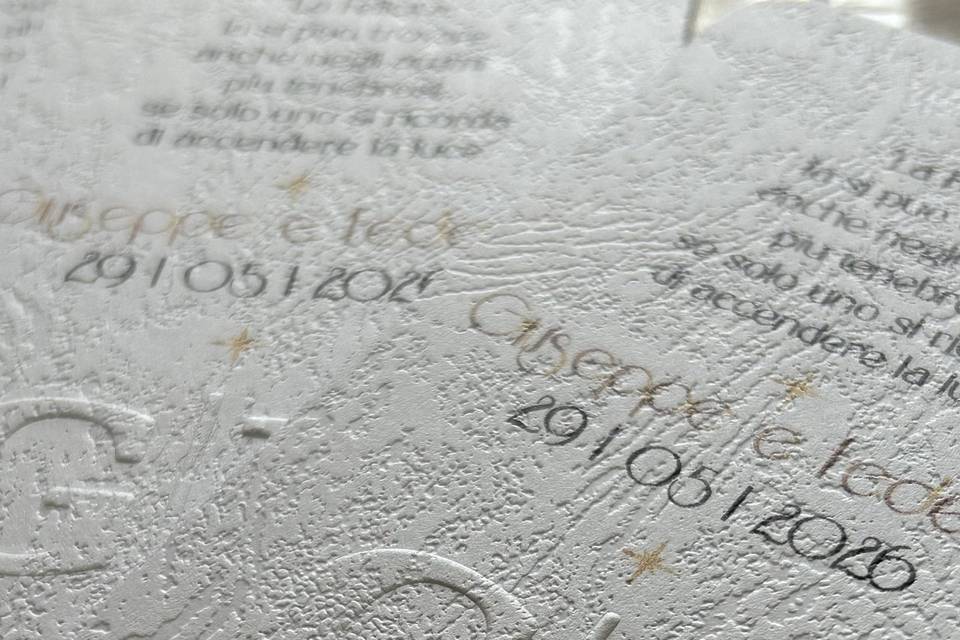 si può trovare
anche negli attimi
più tenebrosi,
se solo uno si ricorda
di accendere la luce
Giuseppe e Icode
29 | 05 | 202
si può
anche negli
più tenebro
se solo uno si ric
di accendere la lu
Giuseppe e Icode
29 | 05 | 2026